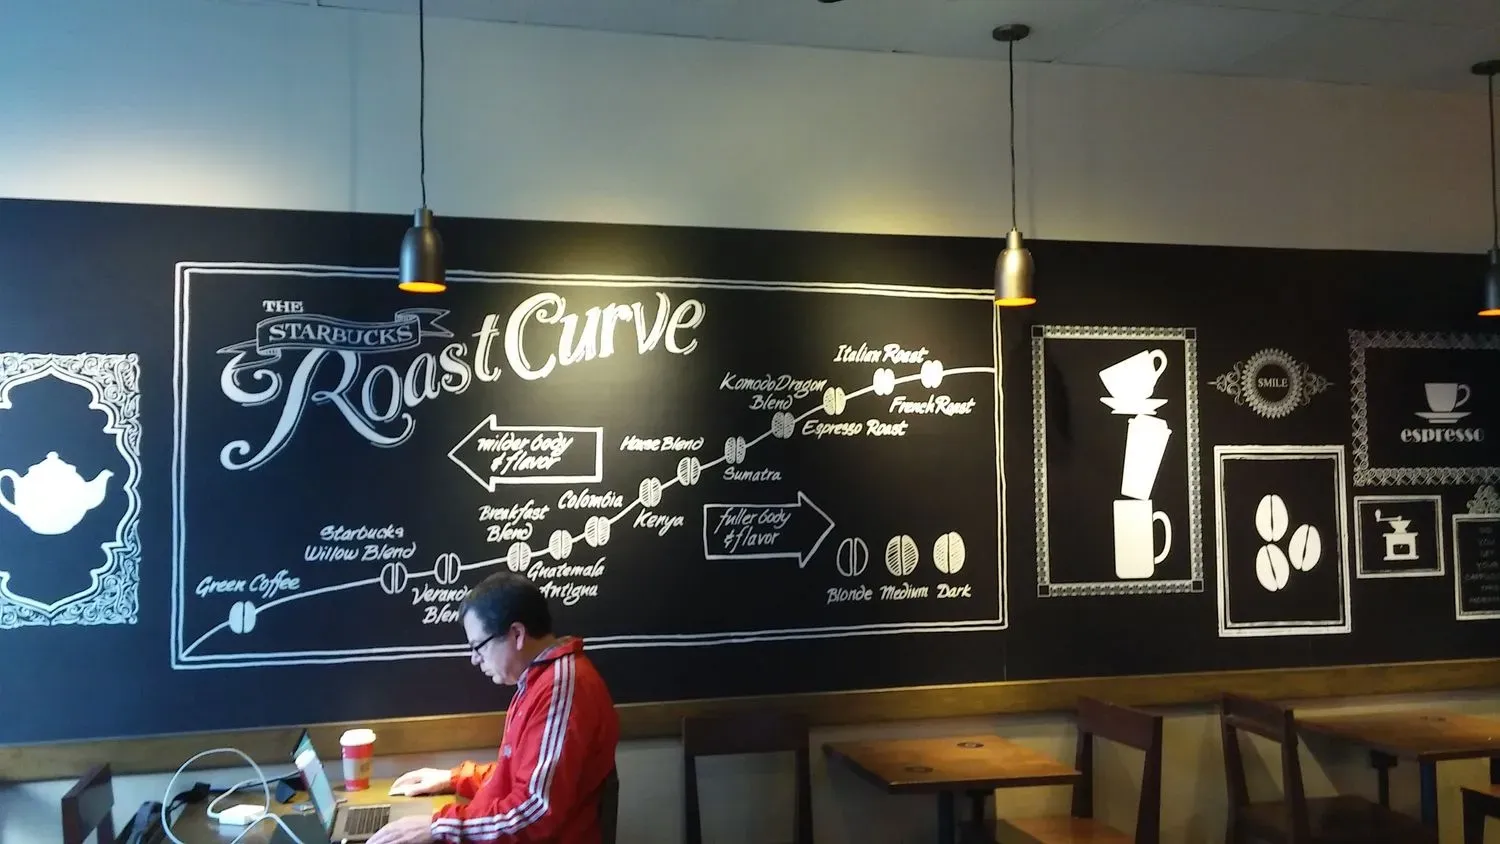 THE
STARBUCKS
Roast Curve
milder body
& flavor
fuller body
& flavor
Green Coffee
Starbucks
Willow Blend
Blen
Breakfast
Blend
Guatemala
Antigua
Colombia
Kenya
House Blend
Sumatra
Komodo Dragon
Blend
Espresso Roast
Italian Roast
French Roast
Blonde Medium Dark
SMILE
espresso
YOU